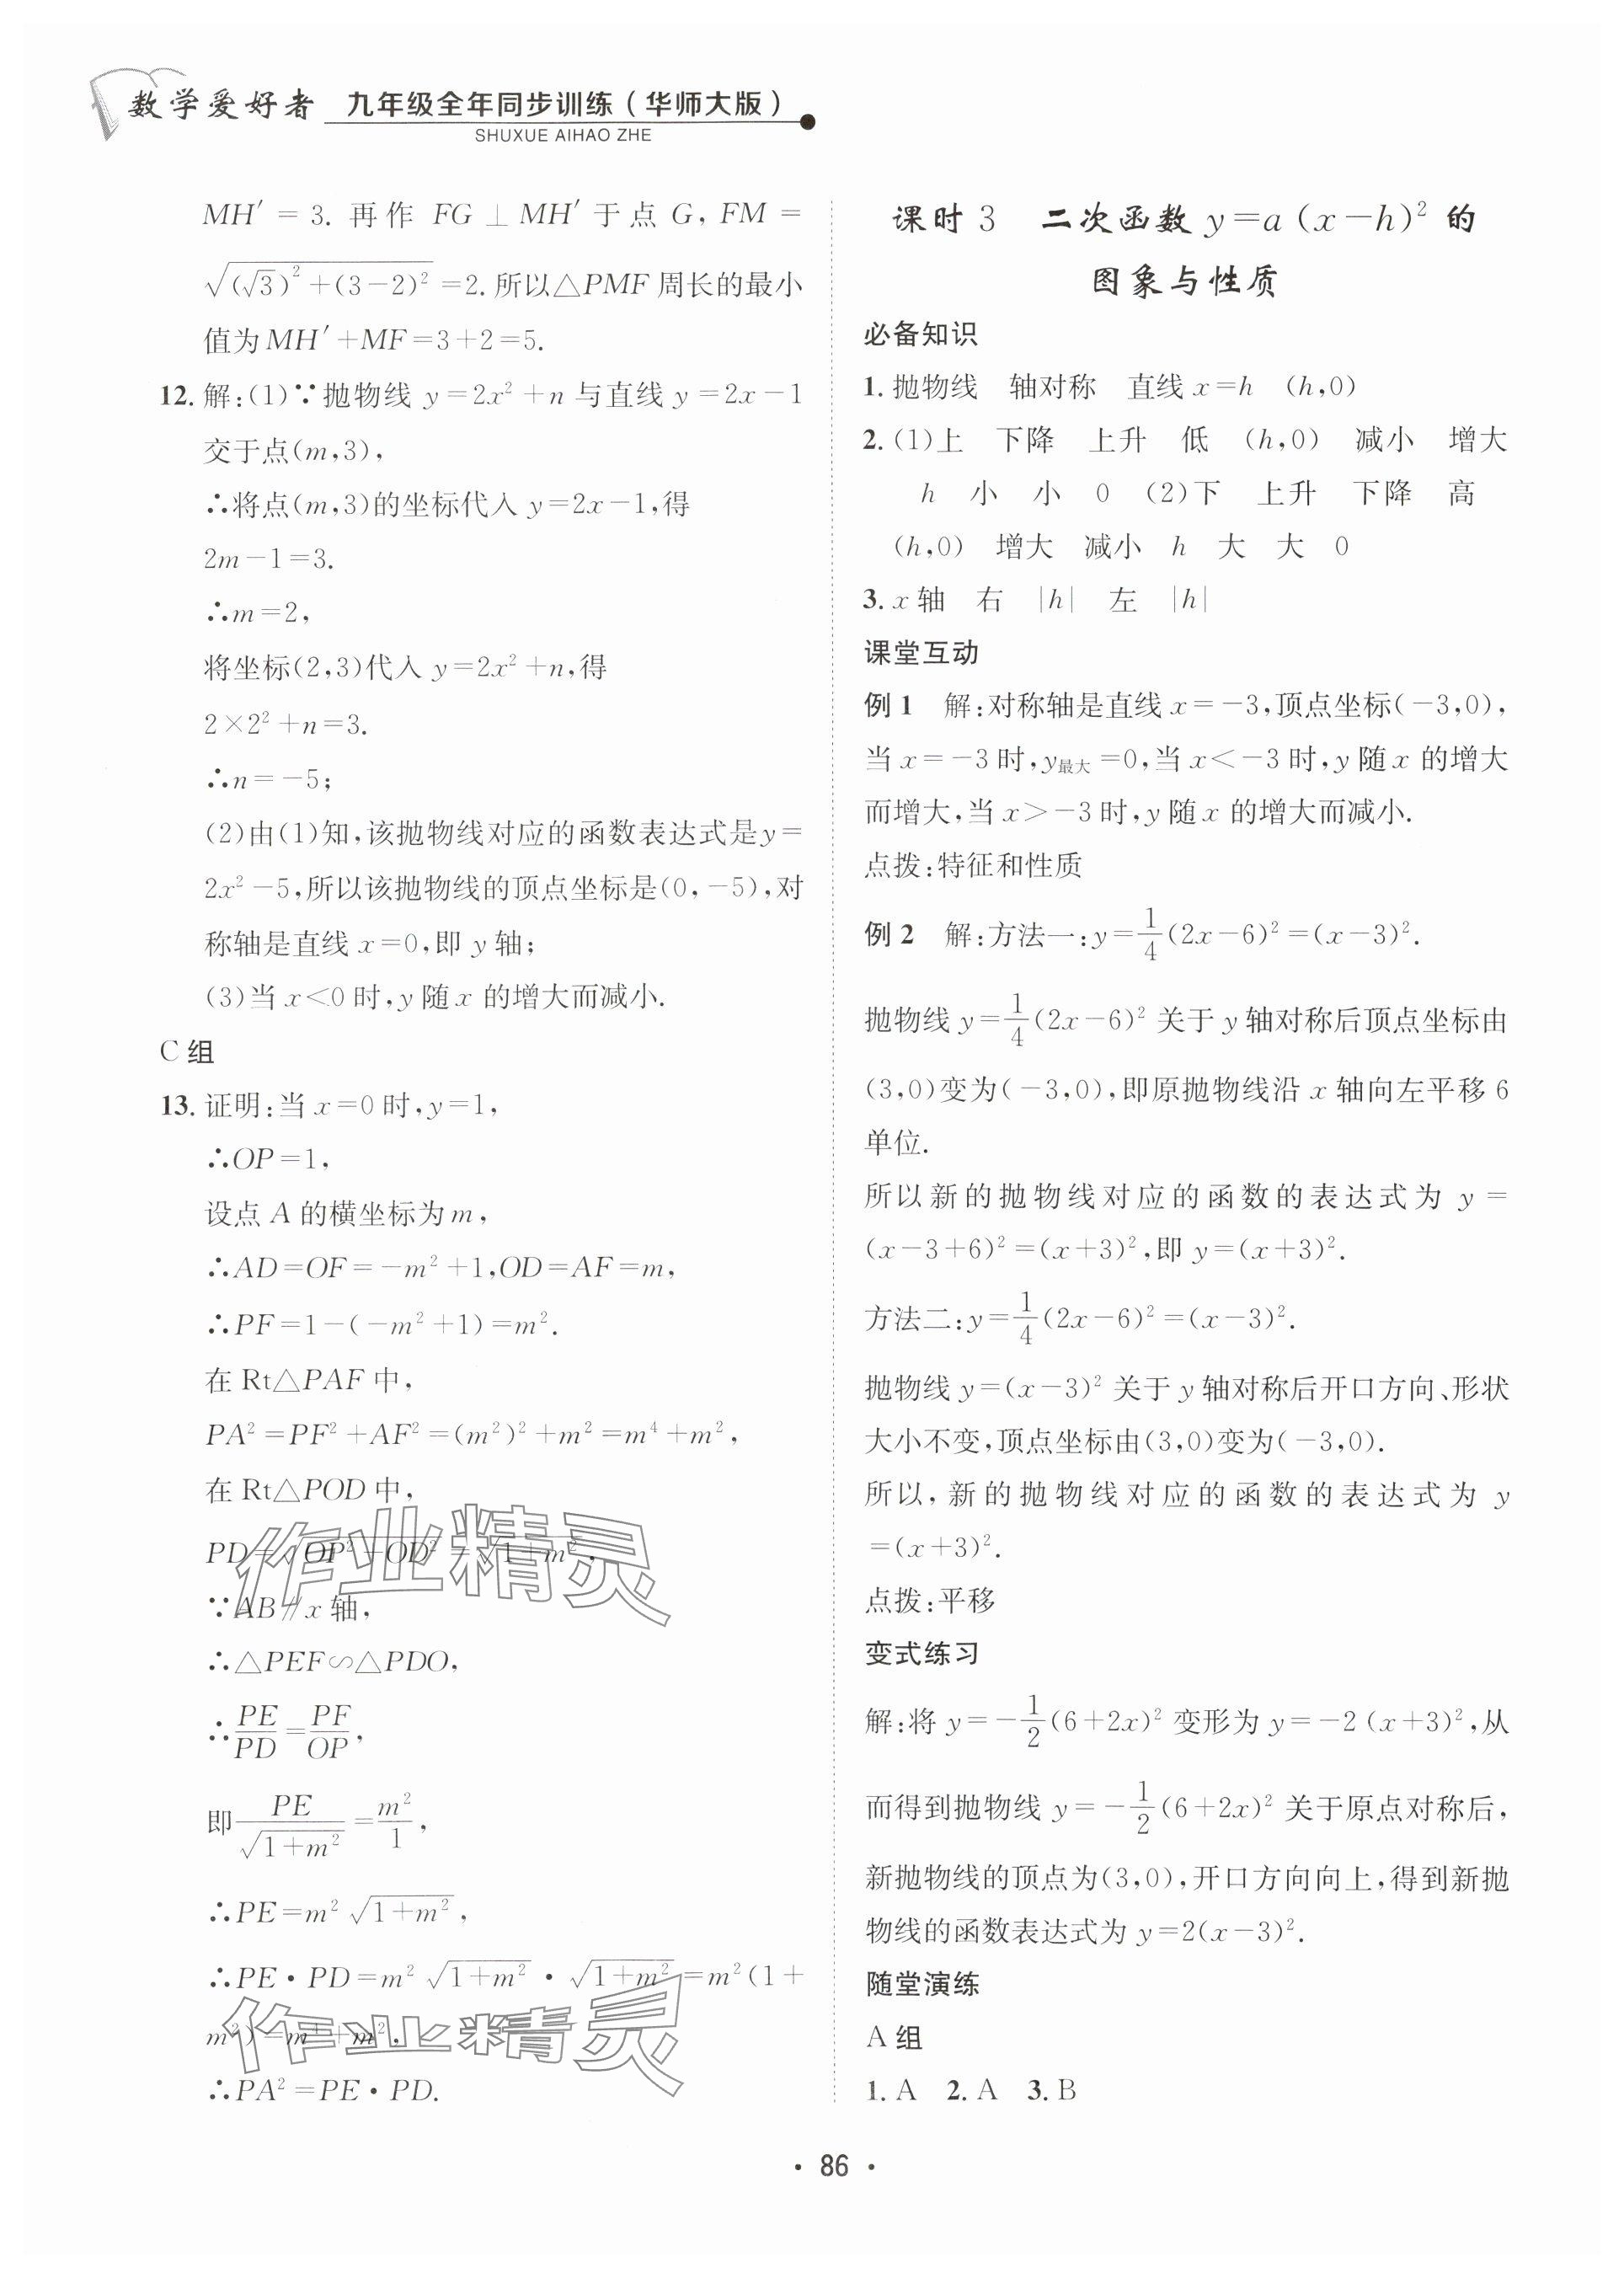 数学爱好者 九年级全年同步训练(华师大版)
SHUXUE AIHAO ZHE
MH′=3. 再作 FG⊥MH′于点 G, FM=
√((√3)²+(3-2)²)=2. 所以△PMF 周长的最小
值为 MH′+MF=3+2=5.
12. 解:(1)∵抛物线 y=2x²+n 与直线 y=2x-1
交于点(m,3),
∴将点(m,3)的坐标代入 y=2x-1,得
2m-1=3.
∴m=2,
将坐标(2,3)代入 y=2x²+n,得
2×2²+n=3.
∴n=-5;
(2)由(1)知,该抛物线对应的函数表达式是 y=
2x²-5,所以该抛物线的顶点坐标是(0,-5),对
称轴是直线 x=0,即 y 轴;
(3)当 x<0 时,y 随 x 的增大而减小.
C 组
13. 证明:当 x=0 时,y=1,
∴OP=1,
设点 A 的横坐标为 m,
∴AD=OF=-m²+1,OD=AF=m,
∴PF=1-(-m²+1)=m².
在 Rt△PAF 中,
PA²=PF²+AF²=(m²)²+m²=m⁴+m²,
在 Rt△POD 中,
PD=√(OP²+OD²)=√(1+m²),
∵AB∥x 轴,
∴△PEF∽△PDO,
∴PE/PD=PF/OP,
即 PE/√(1+m²)=m²/1,
∴PE=m²√(1+m²),
∴PE·PD=m²√(1+m²)·√(1+m²)=m²(1+
m²)=m⁴+m²,
∴PA²=PE·PD.
课时 3 二次函数 y=a(x-h)² 的
图象与性质
必备知识
1. 抛物线 轴对称 直线 x=h (h,0)
2. (1)上 下降 上升 低 (h,0) 减小 增大
h 小 小 0 (2)下 上升 下降 高
(h,0) 增大 减小 h 大 大 0
3. x 轴 右 |h| 左 |h|
课堂互动
例 1 解:对称轴是直线 x=-3,顶点坐标(-3,0),
当 x=-3 时,y最大=0,当 x<-3 时,y 随 x 的增大
而增大,当 x>-3 时,y 随 x 的增大而减小.
点拨:特征和性质
例 2 解:方法一:y=1/4(2x-6)²=(x-3)².
抛物线 y=1/4(2x-6)² 关于 y 轴对称后顶点坐标由
(3,0)变为(-3,0),即原抛物线沿 x 轴向左平移 6
单位.
所以新的抛物线对应的函数的表达式为 y=
(x-3+6)²=(x+3)²,即 y=(x+3)².
方法二:y=1/4(2x-6)²=(x-3)².
抛物线 y=(x-3)² 关于 y 轴对称后开口方向、形状
大小不变,顶点坐标由(3,0)变为(-3,0).
所以,新的抛物线对应的函数的表达式为 y
=(x+3)².
点拨:平移
变式练习
解:将 y=-1/2(6+2x)² 变形为 y=-2(x+3)²,从
而得到抛物线 y=-1/2(6+2x)² 关于原点对称后,
新抛物线的顶点为(3,0),开口方向向上,得到新抛
物线的函数表达式为 y=2(x-3)².
随堂演练
A 组
1. A 2. A 3. B
作业精灵
作业精灵
· 86 ·